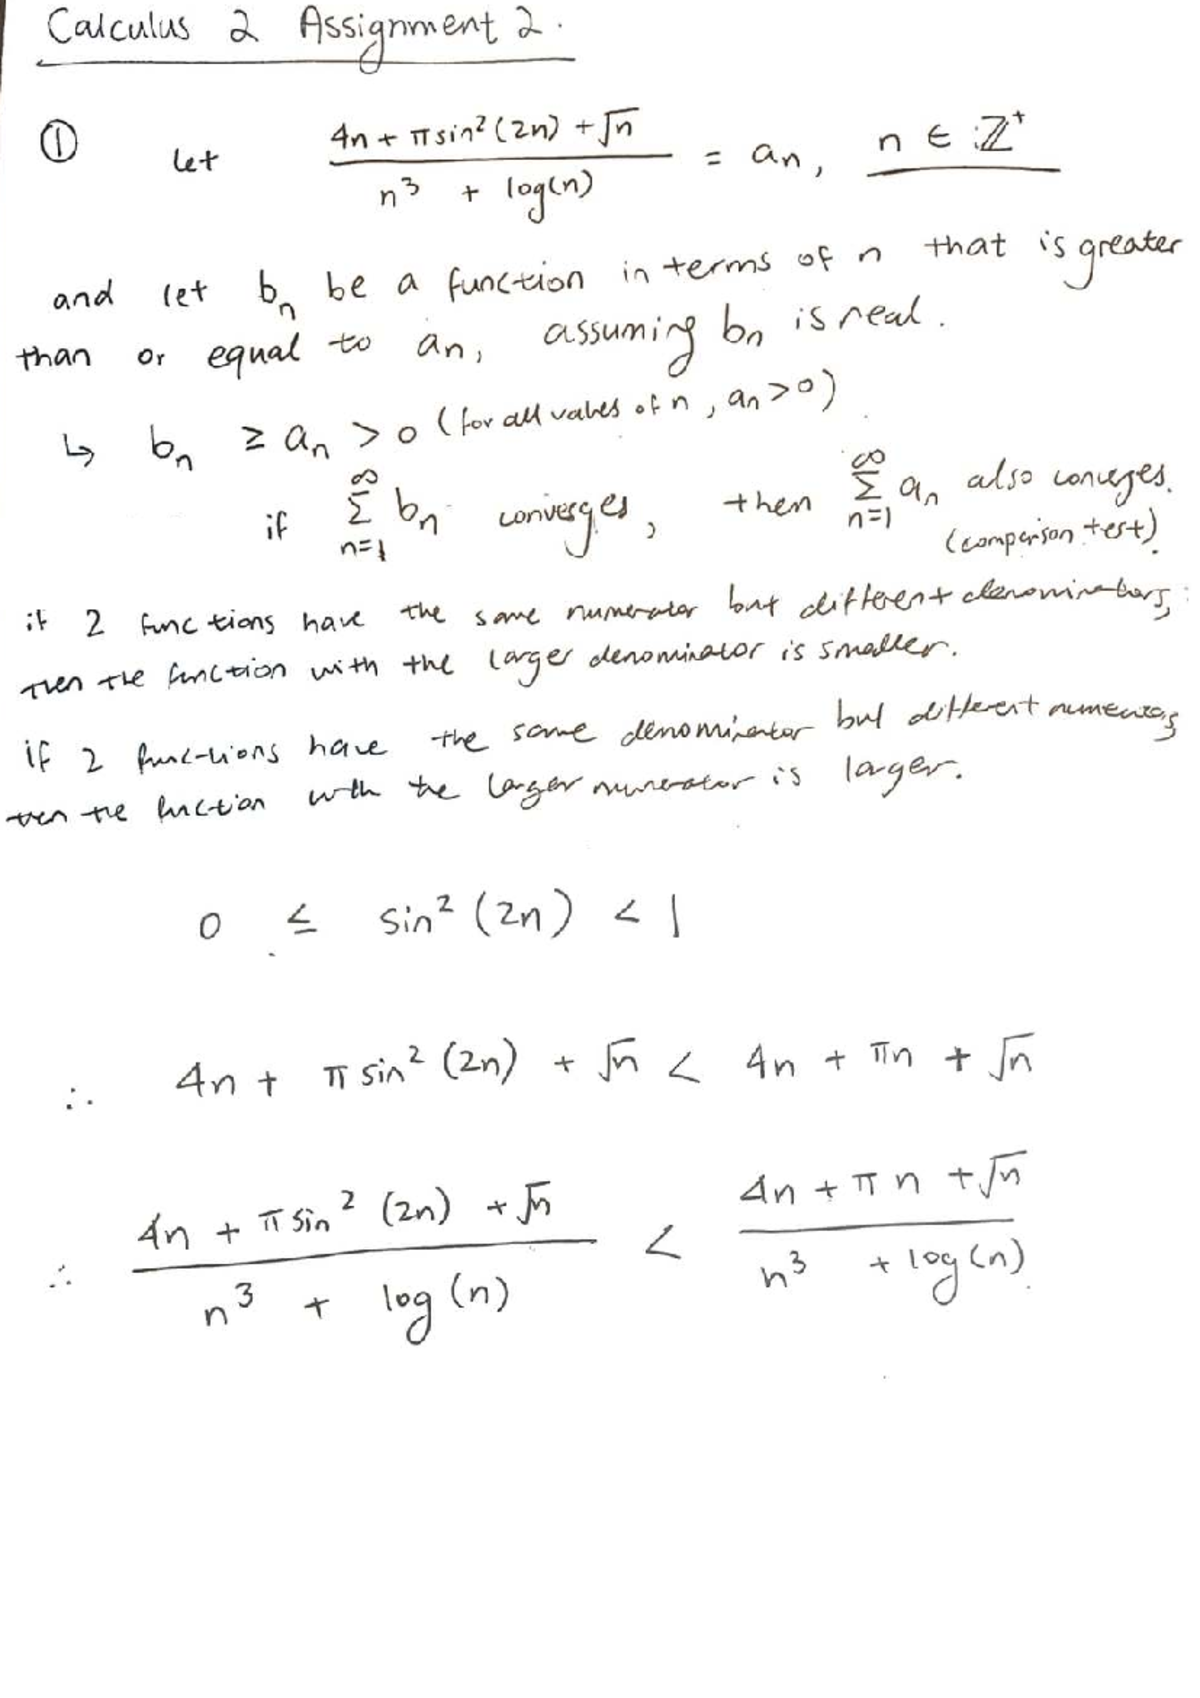 Calculus 2 Assignment 2.
① let (4n + π sin² (2n) + √n) / (n³ + log(n)) = an, n ∈ ℤ⁺
and let bn be a function in terms of n that is greater
than or equal to an, assuming bn is real.
↳ bn ≥ an > 0 (for all values of n, an > 0)
if ∑_{n=1}^{∞} bn converges, then ∑_{n=1}^{∞} an also converges.
(comparison test).
if 2 functions have the same numerator but different denominators,
then the function with the larger denominator is smaller.
if 2 functions have the same denominator but different numerators
then the function with the larger numerator is larger.
0 ≤ sin² (2n) < 1
∴ 4n + π sin² (2n) + √n < 4n + πn + √n
∴ (4n + π sin² (2n) + √n) / (n³ + log (n)) < (4n + πn + √n) / (n³ + log(n))